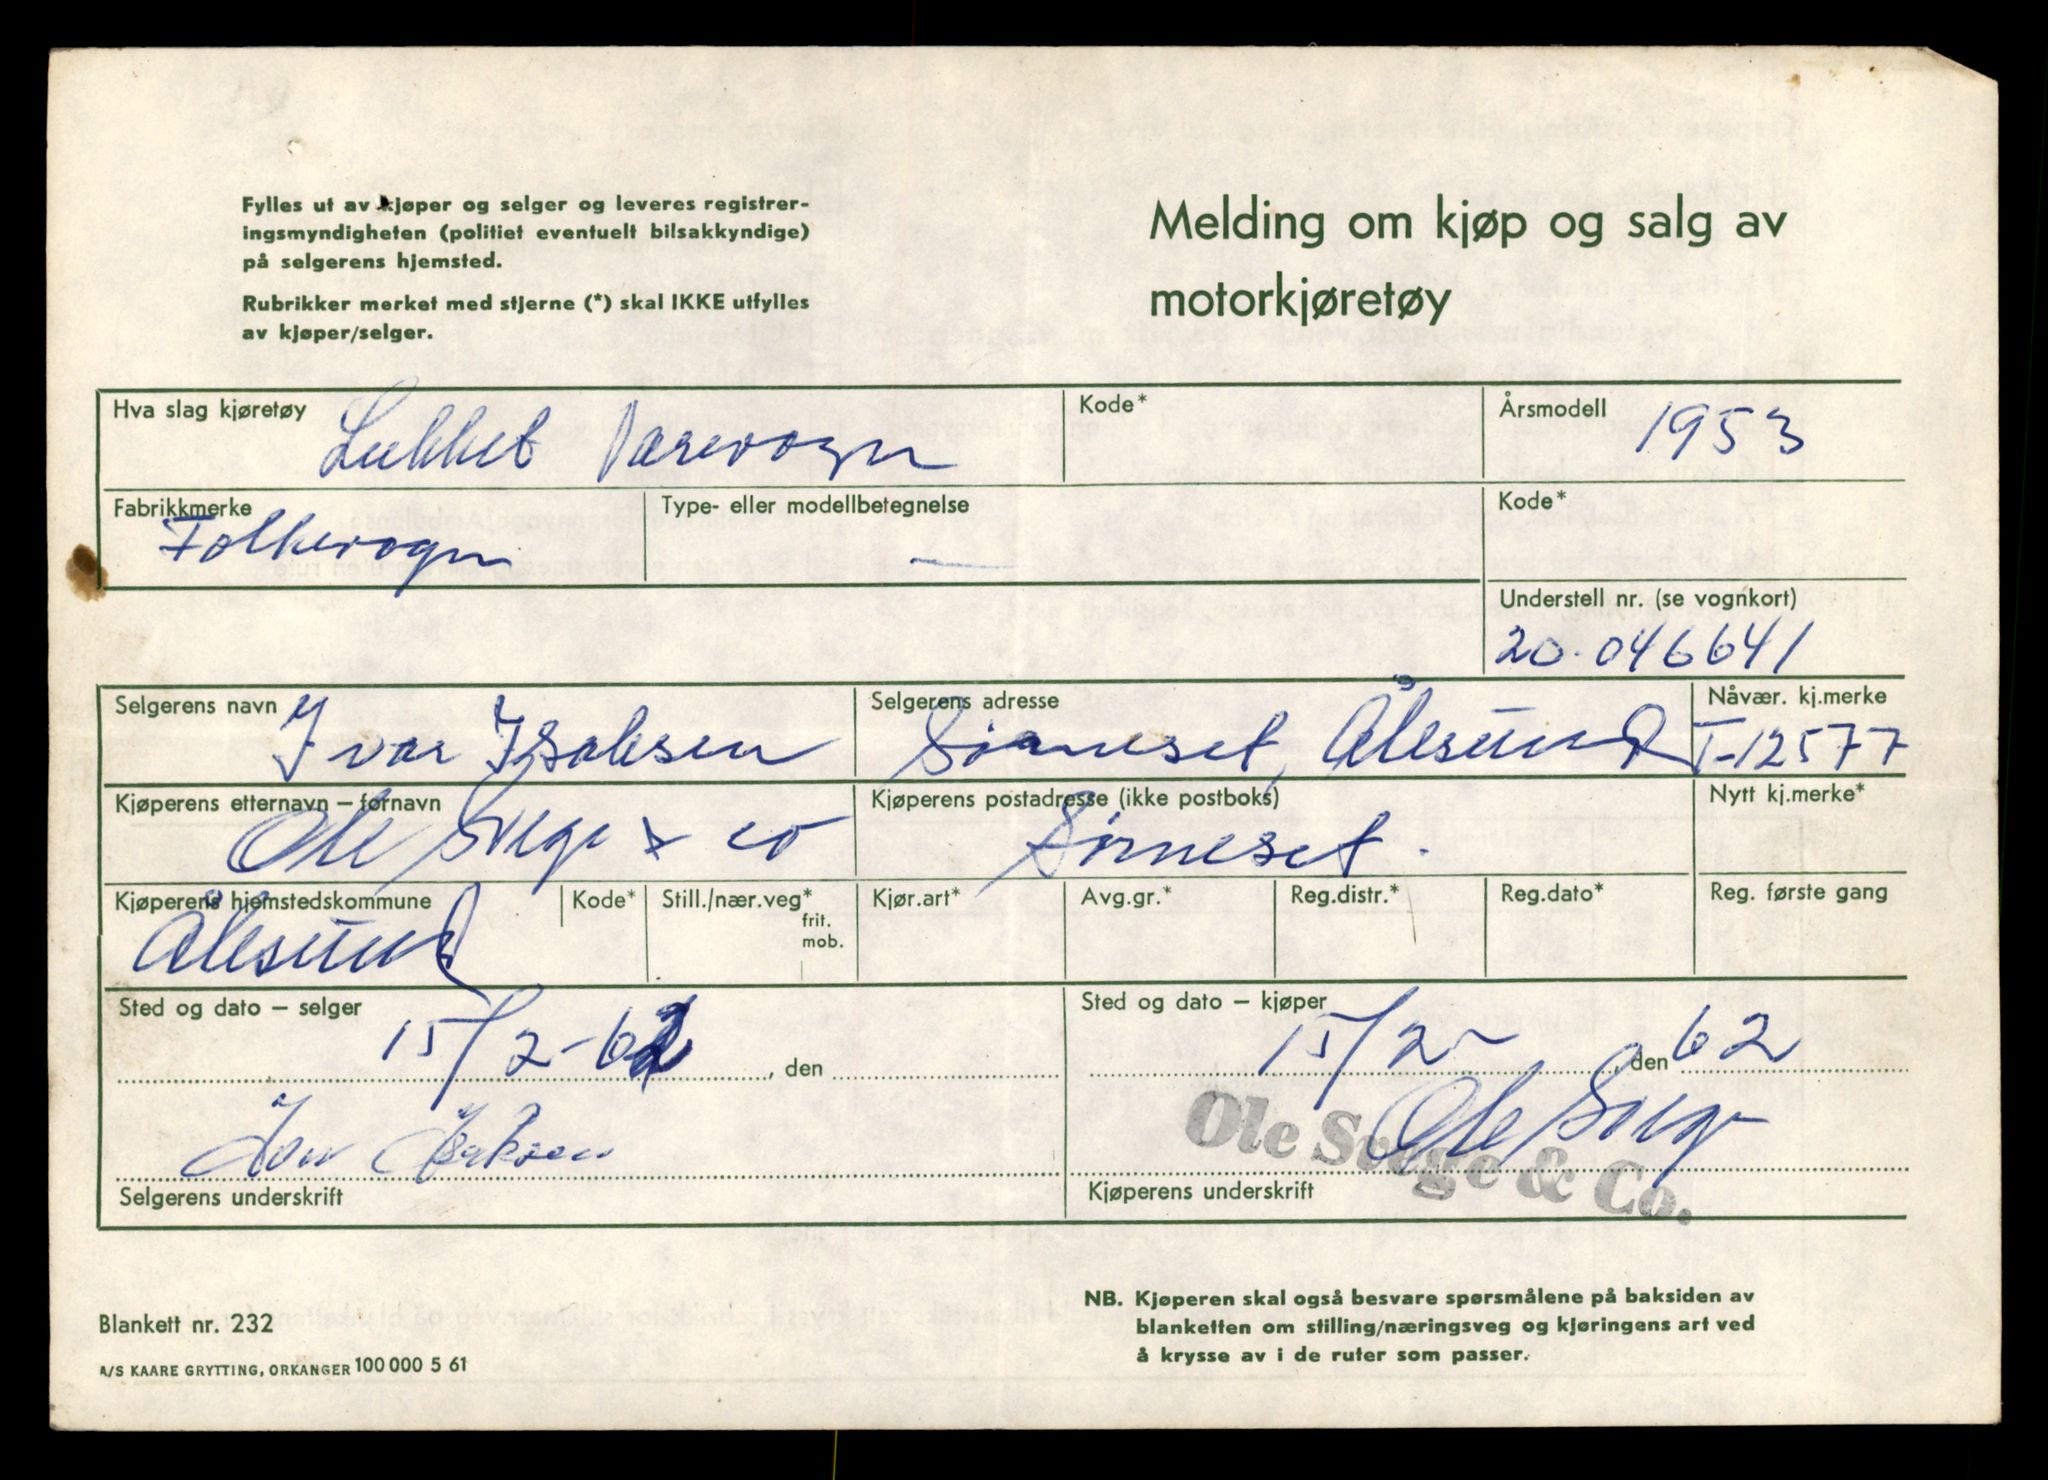 Fylles ut av kjøper og selger og leveres registrer-
ingsmyndigheten (politiet eventuelt bilsakkyndige)
på selgerens hjemsted.
Rubrikker merket med stjerne (*) skal IKKE utfylles
av kjøper/selger.
Melding om kjøp og salg av
motorkjøretøy
Hva slag kjøretøy Lukket Varevogn
Kode*
Årsmodell 1953
Fabrikkmerke Folkevogn
Type- eller modellbetegnelse —
Kode*
Understell nr. (se vognkort)
20-046641
Selgerens navn Ivar Isaksen
Selgerens adresse Sørneset, Ålesund
Nåvær. kj.merke T-12577
Kjøperens etternavn – fornavn Ole Svege & co
Kjøperens postadresse (ikke postboks) Sørneset.
Nytt kj.merke*
Kjøperens hjemstedskommune Ålesund
Kode*
Still./nær.veg*
frit.
mob.
Kjør.art*
Avg.gr.*
Reg.distr.*
Reg.dato*
Reg. første gang
Sted og dato – selger
15/2-62, den
Ivar Isaksen
Selgerens underskrift
Sted og dato – kjøper
15/2- , den 62
Ole Svege
Ole Svege & Co.
Kjøperens underskrift
Blankett nr. 232
A/S KAARE GRYTTING, ORKANGER 100 000 5 61
NB. Kjøperen skal også besvare spørsmålene på baksiden av
blanketten om stilling/næringsveg og kjøringens art ved
å krysse av i de ruter som passer.